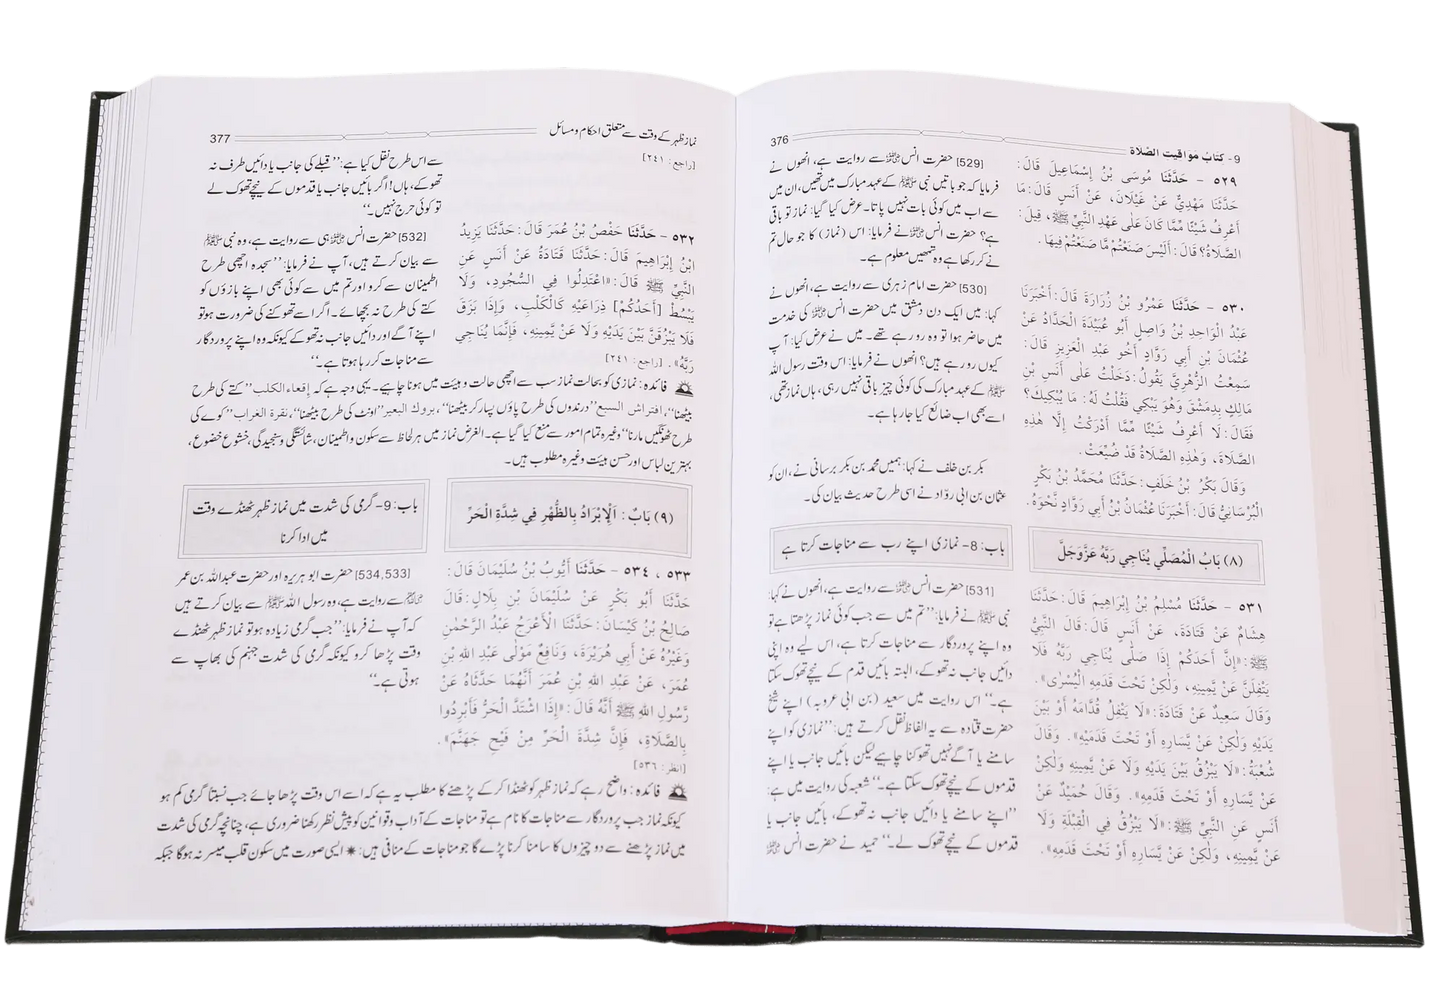 9- كتابُ مَوَاقيت الصَّلاة
376
٥٢٩ - حَدَّثَنَا مُوسَى بْنُ إِسْمَاعِيلَ قَالَ:
حَدَّثَنَا مَهْدِيٌّ عَنْ غَيْلَانَ، عَنْ أَنَسٍ قَالَ: مَا
أَعْرِفُ شَيْئًا مِّمَّا كَانَ عَلَى عَهْدِ النَّبِيِّ ﷺ، قِيلَ:
الصَّلَاةُ؟ قَالَ: أَلَيْسَ صَنَعْتُمْ مَّا صَنَعْتُمْ فِيهَا.
٥٣٠ - حَدَّثَنَا عَمْرُو بْنُ زُرَارَةَ قَالَ: أَخْبَرَنَا
عَبْدُ الْوَاحِدِ بْنُ وَاصِلٍ أَبُو عُبَيْدَةَ الْحَدَّادُ عَنْ
عُثْمَانَ بْنِ أَبِي رَوَّادٍ أَخُو عَبْدِ الْعَزِيزِ قَالَ:
سَمِعْتُ الزُّهْرِيَّ يَقُولُ: دَخَلْتُ عَلَى أَنَسِ بْنِ
مَالِكٍ بِدِمَشْقَ وَهُوَ يَبْكِي فَقُلْتُ لَهُ: مَا يُبْكِيكَ؟
فَقَالَ: لَا أَعْرِفُ شَيْئًا مِّمَّا أَدْرَكْتُ إِلَّا هٰذِهِ
الصَّلَاةَ، وَهٰذِهِ الصَّلَاةُ قَدْ ضُيِّعَتْ.
وَقَالَ بَكْرُ بْنُ خَلَفٍ: حَدَّثَنَا مُحَمَّدُ بْنُ بَكْرٍ
الْبُرْسَانِيُّ قَالَ: أَخْبَرَنَا عُثْمَانُ بْنُ أَبِي رَوَّادٍ نَحْوَهُ.
(٨) بَابُ الْمُصَلِّي يُنَاجِي رَبَّهُ عَزَّوَجَلَّ
٥٣١ - حَدَّثَنَا مُسْلِمُ بْنُ إِبْرَاهِيمَ قَالَ: حَدَّثَنَا
هِشَامٌ عَنْ قَتَادَةَ، عَنْ أَنَسٍ قَالَ: قَالَ النَّبِيُّ
ﷺ: «إِنَّ أَحَدَكُمْ إِذَا صَلَّى يُنَاجِي رَبَّهُ فَلَا
يَتْفِلَنَّ عَنْ يَّمِينِهِ، وَلٰكِنْ تَحْتَ قَدَمِهِ الْيُسْرَى».
وَقَالَ سَعِيدٌ عَنْ قَتَادَةَ: «لَا يَتْفِلُ قُدَّامَهُ أَوْ بَيْنَ
يَدَيْهِ وَلٰكِنْ عَنْ يَّسَارِهِ أَوْ تَحْتَ قَدَمَيْهِ». وَقَالَ
شُعْبَةُ: «لَا يَبْزُقُ بَيْنَ يَدَيْهِ وَلَا عَنْ يَّمِينِهِ وَلٰكِنْ
عَنْ يَّسَارِهِ أَوْ تَحْتَ قَدَمِهِ». وَقَالَ حُمَيْدٌ عَنْ
أَنَسٍ عَنِ النَّبِيِّ ﷺ: «لَا يَبْزُقْ فِي الْقِبْلَةِ وَلَا
عَنْ يَّمِينِهِ، وَلٰكِنْ عَنْ يَّسَارِهِ أَوْ تَحْتَ قَدَمِهِ».
[529] حضرت انس ؓ سے روایت ہے، انھوں نے
فرمایا کہ جو باتیں نبی ﷺ کے عہد مبارک میں تھیں، ان میں
سے اب میں کوئی بات نہیں پاتا۔ عرض کیا گیا: نماز تو باقی
ہے؟ حضرت انس ؓ نے فرمایا: اس (نماز) کا جو حال تم
نے کر رکھا ہے وہ تمھیں معلوم ہے۔
[530] حضرت امام زہری سے روایت ہے، انھوں نے
کہا: میں ایک دن دمشق میں حضرت انس ؓ کی خدمت
میں حاضر ہوا تو وہ رو رہے تھے۔ میں نے عرض کیا: آپ
کیوں رو رہے ہیں؟ انھوں نے فرمایا: اس وقت رسول اللہ
ﷺ کے عہد مبارک کی کوئی چیز باقی نہیں رہی، ہاں نماز تھی،
اسے بھی اب ضائع کیا جا رہا ہے۔
بکر بن خلف نے کہا: ہمیں محمد بن بکر برسانی نے، ان کو
عثمان بن ابی روّاد نے اسی طرح حدیث بیان کی۔
باب: 8- نمازی اپنے رب سے مناجات کرتا ہے
[531] حضرت انس ؓ سے روایت ہے، انھوں نے کہا:
نبی ﷺ نے فرمایا: ”تم میں سے جب کوئی نماز پڑھتا ہے تو
وہ اپنے پروردگار سے مناجات کرتا ہے، اس لیے وہ اپنی
دائیں جانب نہ تھوکے، البتہ بائیں قدم کے نیچے تھوک سکتا
ہے۔“ اس روایت میں سعید (بن ابی عروبہ) اپنے شیخ
حضرت قتادہ سے یہ الفاظ نقل کرتے ہیں: ”نمازی کو اپنے
سامنے یا آگے نہیں تھوکنا چاہیے لیکن بائیں جانب یا اپنے
قدموں کے نیچے تھوک سکتا ہے۔“ شعبہ کی روایت میں ہے:
”اپنے سامنے یا دائیں جانب نہ تھوکے، بائیں جانب یا
قدموں کے نیچے تھوک لے۔“ حمید نے حضرت انس ؓ
نماز ظہر کے وقت سے متعلق احکام و مسائل
377
[راجع: ٢٤١]
٥٣٢ - حَدَّثَنَا حَفْصُ بْنُ عُمَرَ قَالَ: حَدَّثَنَا يَزِيدُ
ابْنُ إِبْرَاهِيمَ قَالَ: حَدَّثَنَا قَتَادَةُ عَنْ أَنَسٍ عَنِ
النَّبِيِّ ﷺ قَالَ: «اعْتَدِلُوا فِي السُّجُودِ، وَلَا
يَبْسُطْ [أَحَدُكُمْ] ذِرَاعَيْهِ كَالْكَلْبِ، وَإِذَا بَزَقَ
فَلَا يَبْزُقَنَّ بَيْنَ يَدَيْهِ وَلَا عَنْ يَّمِينِهِ، فَإِنَّمَا يُنَاجِي
رَبَّهُ». [راجع: ٢٤١]
سے اس طرح نقل کیا ہے: ”قبلے کی جانب یا دائیں طرف نہ
تھوکے، ہاں! اگر بائیں جانب یا قدموں کے نیچے تھوک لے
تو کوئی حرج نہیں۔“
[532] حضرت انس ؓ ہی سے روایت ہے، وہ نبی ﷺ
سے بیان کرتے ہیں، آپ نے فرمایا: ”سجدہ اچھی طرح
اطمینان سے کرو اور تم میں سے کوئی بھی اپنے بازوؤں کو
کتے کی طرح نہ بچھائے۔ اگر اسے تھوکنے کی ضرورت ہو تو
اپنے آگے اور دائیں جانب نہ تھوکے کیونکہ وہ اپنے پروردگار
سے مناجات کر رہا ہوتا ہے۔“
فائدہ: نمازی کو بحالت نماز سب سے اچھی حالت و ہیئت میں ہونا چاہیے۔ یہی وجہ ہے کہ إقعاء الكلب ”کتے کی طرح
بیٹھنا“، افتراش السبع ”درندوں کی طرح پاؤں پسار کر بیٹھنا“، بروك البعير ”اونٹ کی طرح بیٹھنا“، نقرة الغراب ”کوے کی
طرح ٹھونگیں مارنا“ وغیرہ تمام امور سے منع کیا گیا ہے۔ الغرض نماز میں ہر لحاظ سے سکون و اطمینان، شائستگی و سنجیدگی، خشوع خضوع،
بہترین لباس اور حسن ہیئت وغیرہ مطلوب ہیں۔
(٩) بَابُ: اَلْإِبْرَادُ بِالظُّهْرِ فِي شِدَّةِ الْحَرِّ
باب: 9- گرمی کی شدت میں نماز ظہر ٹھنڈے وقت
میں ادا کرنا
٥٣٣ ، ٥٣٤ - حَدَّثَنَا أَيُّوبُ بْنُ سُلَيْمَانَ قَالَ:
حَدَّثَنَا أَبُو بَكْرٍ عَنْ سُلَيْمَانَ بْنِ بِلَالٍ: قَالَ
صَالِحُ بْنُ كَيْسَانَ: حَدَّثَنَا الْأَعْرَجُ عَبْدُ الرَّحْمٰنِ
وَغَيْرُهُ عَنْ أَبِي هُرَيْرَةَ، وَنَافِعٌ مَوْلَى عَبْدِ اللهِ بْنِ
عُمَرَ، عَنْ عَبْدِ اللهِ بْنِ عُمَرَ أَنَّهُمَا حَدَّثَاهُ عَنْ
رَّسُولِ اللهِ ﷺ أَنَّهُ قَالَ: «إِذَا اشْتَدَّ الْحَرُّ فَأَبْرِدُوا
بِالصَّلَاةِ، فَإِنَّ شِدَّةَ الْحَرِّ مِنْ فَيْحِ جَهَنَّمَ».
[انظر: ٥٣٦]
[534,533] حضرت ابو ہریرہ اور حضرت عبداللہ بن عمر
ؓ سے روایت ہے، وہ رسول اللہ ﷺ سے بیان کرتے ہیں
کہ آپ نے فرمایا: ”جب گرمی زیادہ ہو تو نماز ظہر ٹھنڈے
وقت پڑھا کرو کیونکہ گرمی کی شدت جہنم کی بھاپ سے
ہوتی ہے۔“
فائدہ: واضح رہے کہ نماز ظہر کو ٹھنڈا کر کے پڑھنے کا مطلب یہ ہے کہ اسے اس وقت پڑھا جائے جب نسبتاً گرمی کم ہو
کیونکہ نماز جب پروردگار سے مناجات کا نام ہے تو مناجات کے آداب و قوانین کو پیش نظر رکھنا ضروری ہے، چنانچہ گرمی کی شدت
میں نماز پڑھنے سے دو چیزوں کا سامنا کرنا پڑے گا جو مناجات کے منافی ہیں: ✷ ایسی صورت میں سکون قلب میسر نہ ہوگا جبکہ